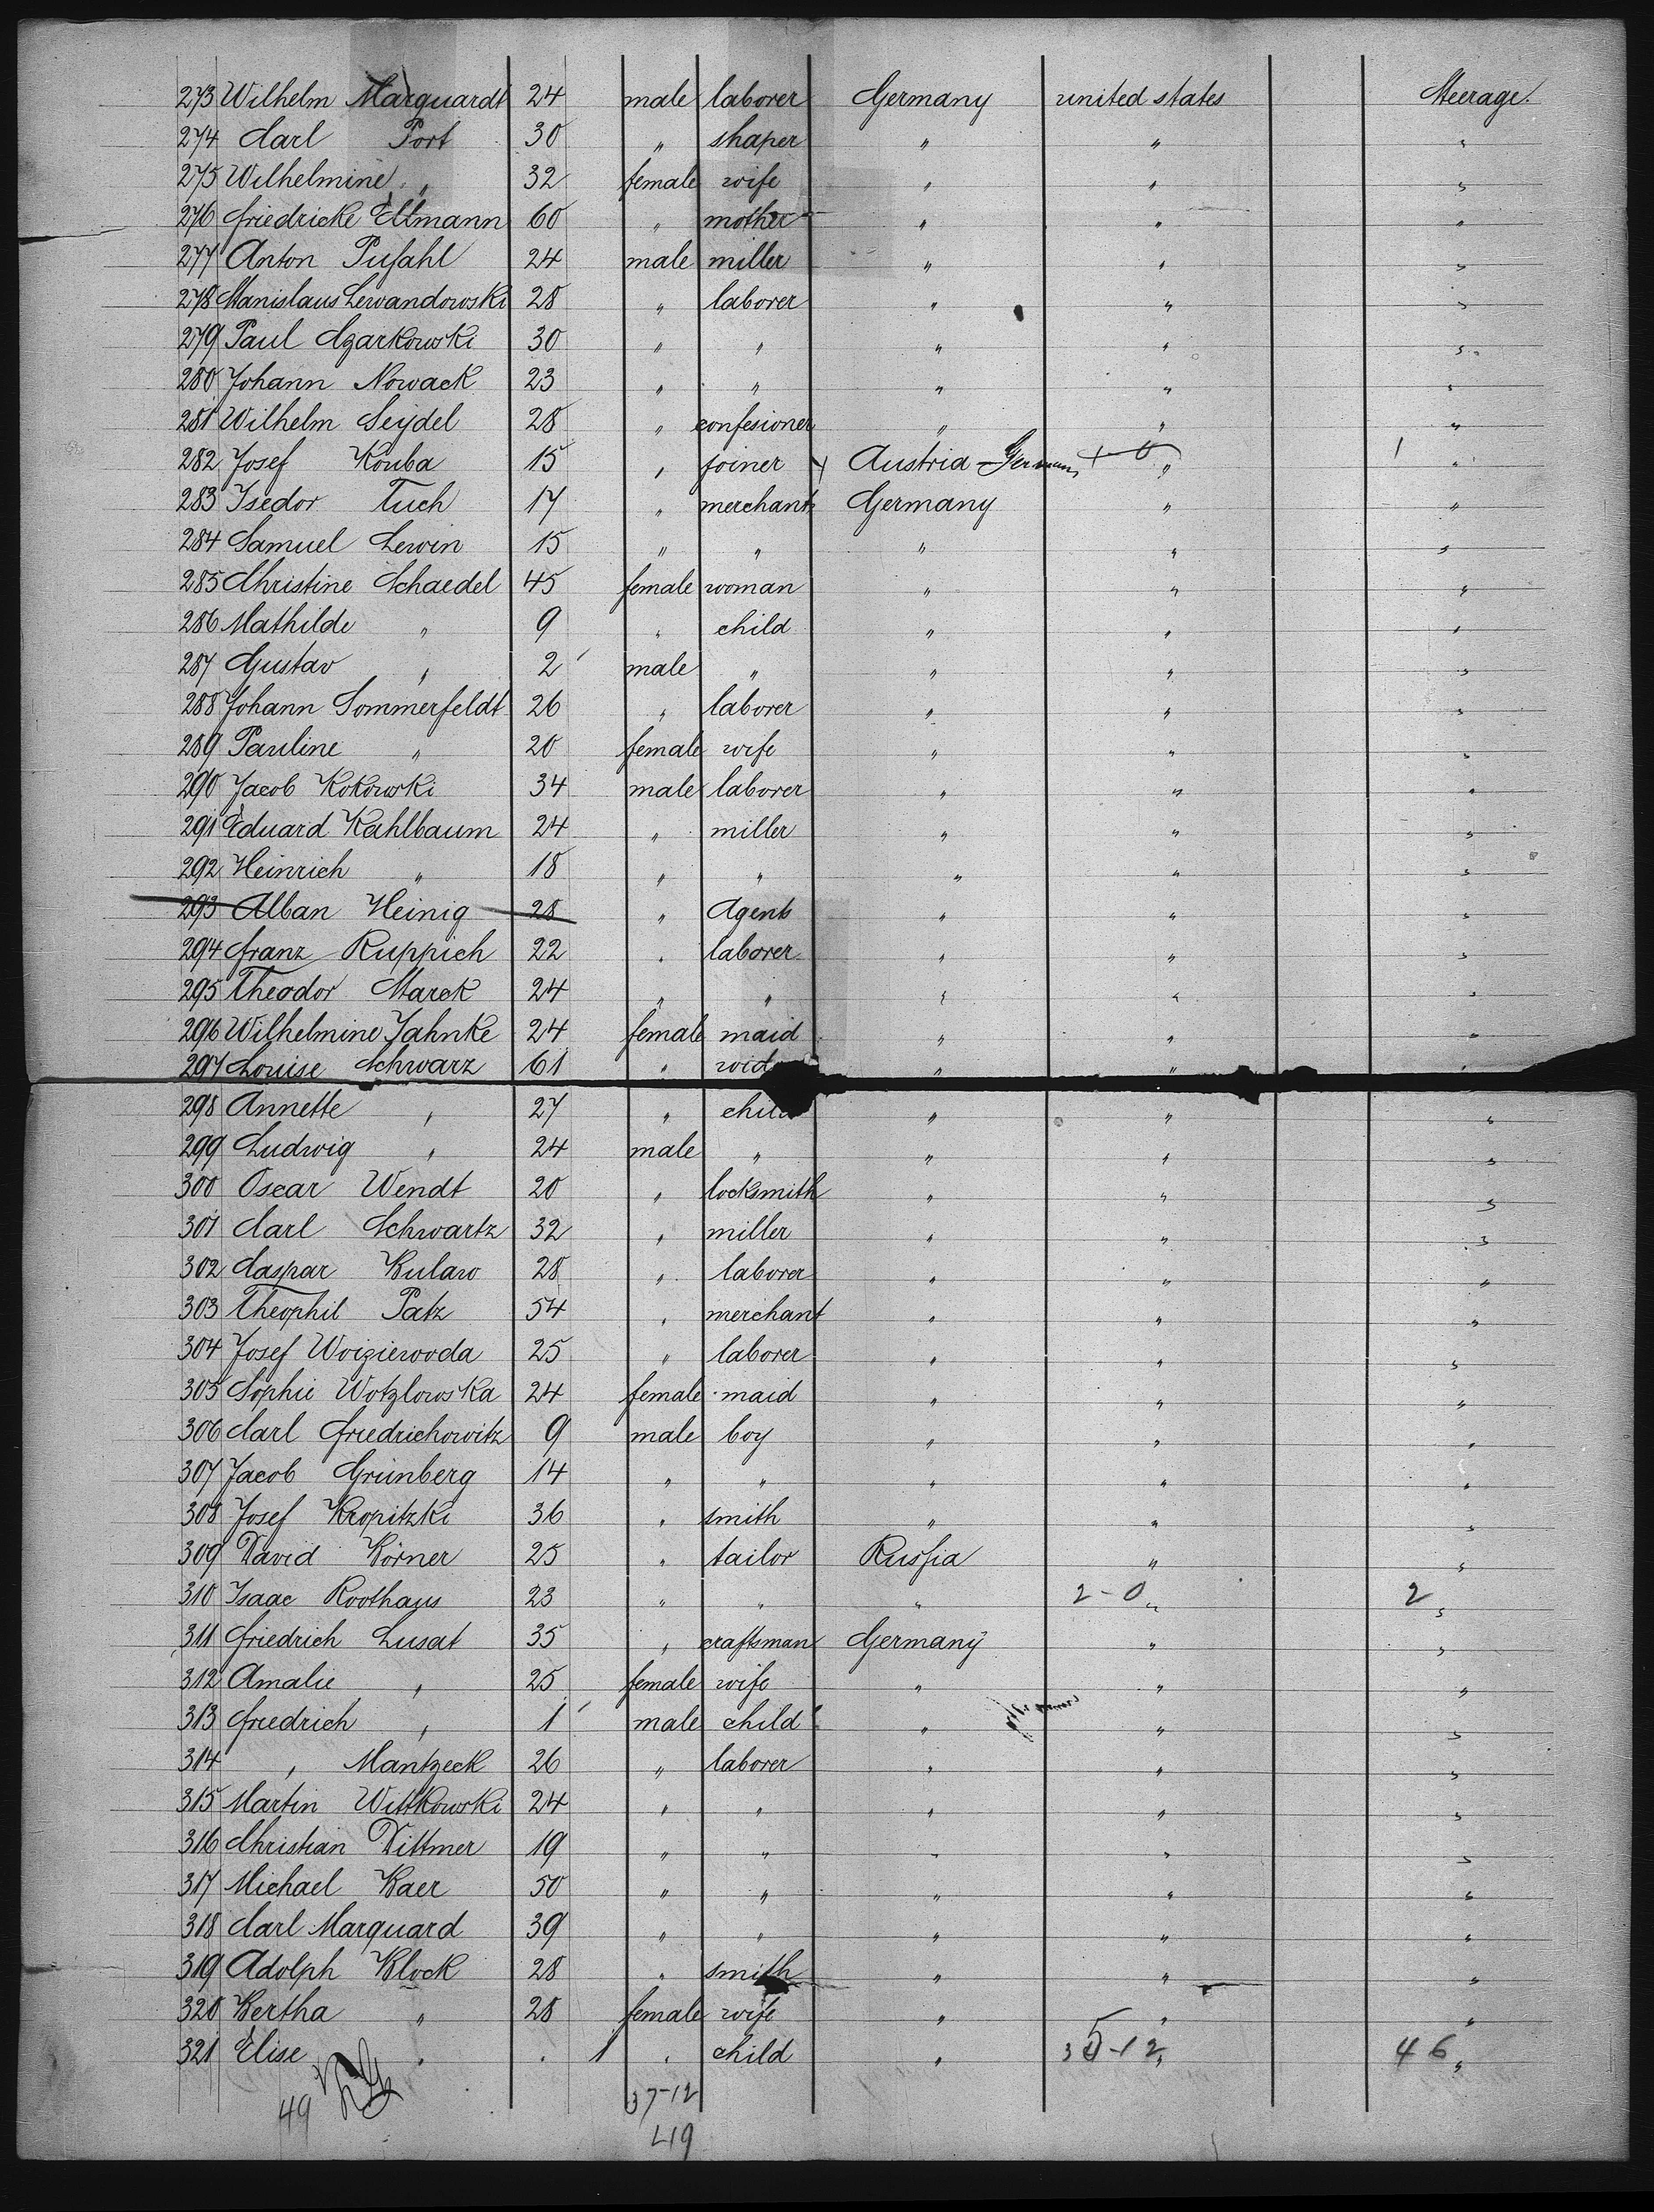 273 Wilhelm Marquardt 24 male laborer Germany united states Steerage.
274 Carl Port 30 " shaper " " "
275 Wilhelmine " 32 female wife " " "
276 Friedricke Ellmann 60 " mother " " "
277 Anton Pufahl 24 male miller " " "
278 Stanislaus Lewandowski 28 " laborer " " "
279 Paul Czarkowski 30 " " " " "
280 Johann Nowack 23 " " " " "
281 Wilhelm Seydel 28 " confesioner " " "
282 Josef Kouba 15 " joiner Austria German " 1 "
283 Isedor Tuch 17 " merchant Germany " "
284 Samuel Lewin 15 " " " " "
285 Christine Schaedel 45 female woman " " "
286 Mathilde " 9 " child " " "
287 Gustav " 2 male " " " "
288 Johann Sommerfeldt 26 " laborer " " "
289 Pauline " 20 female wife " " "
290 Jacob Kokowski 34 male laborer " " "
291 Eduard Kahlbaum 24 " miller " " "
292 Heinrich " 18 " " " " "
293 Alban Heinig 28 " Agent " " "
294 Franz Ruppich 22 " laborer " " "
295 Theodor Marek 24 " " " " "
296 Wilhelmine Jahnke 24 female maid " " "
297 Louise Schwarz 61 " wid " " "
298 Annette " 27 " child " " "
299 Ludwig " 24 male " " " "
300 Oscar Wendt 20 " locksmith " " "
301 Carl Schwartz 32 " miller " " "
302 Caspar Bulaw 28 " laborer " " "
303 Theophil Patz 54 " merchant " " "
304 Josef Woiziewoda 25 " laborer " " "
305 Sophie Wotzlowska 24 female maid " " "
306 Carl Friedrichowitz 9 male boy " " "
307 Jacob Grünberg 14 " " " " "
308 Josef Kropitzki 36 " smith " " "
309 David Körner 25 " tailor Russia " "
310 Isaac Roothaus 23 " " " 2-0 " 2 "
311 Friedrich Lusat 35 " craftsman Germany " "
312 Amalie " 25 female wife " " "
313 Friedrich " 1 male child " " "
314 " Mantzeck 26 " laborer " " "
315 Martin Wittkowski 24 " " " " "
316 Christian Dittmer 19 " " " " "
317 Michael Baer 50 " " " " "
318 Carl Marquard 39 " " " " "
319 Adolph Block 28 " smith " " "
320 Bertha " 28 female wife " " "
321 Elise " . 1 " child " " 46 "
49 37-12
49